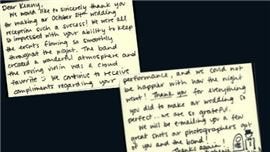 Dear Kenny,
We would like to sincerely thank you
for making our October 21st wedding
reception such a success! We were all
so impressed with your ability to keep
the events flowing so smoothly
throughout the night. The band
created a wonderful atmosphere and
the roving violin was a crowd
favorite :) We continue to receive
compliments regarding your
performance, and we could not
be happier with how the night
went! Thank you for everything
you did to make our wedding so
perfect — we are so grateful
We will be emailing you a few
great shots our photographers got
of you and the band!
Thanks again!